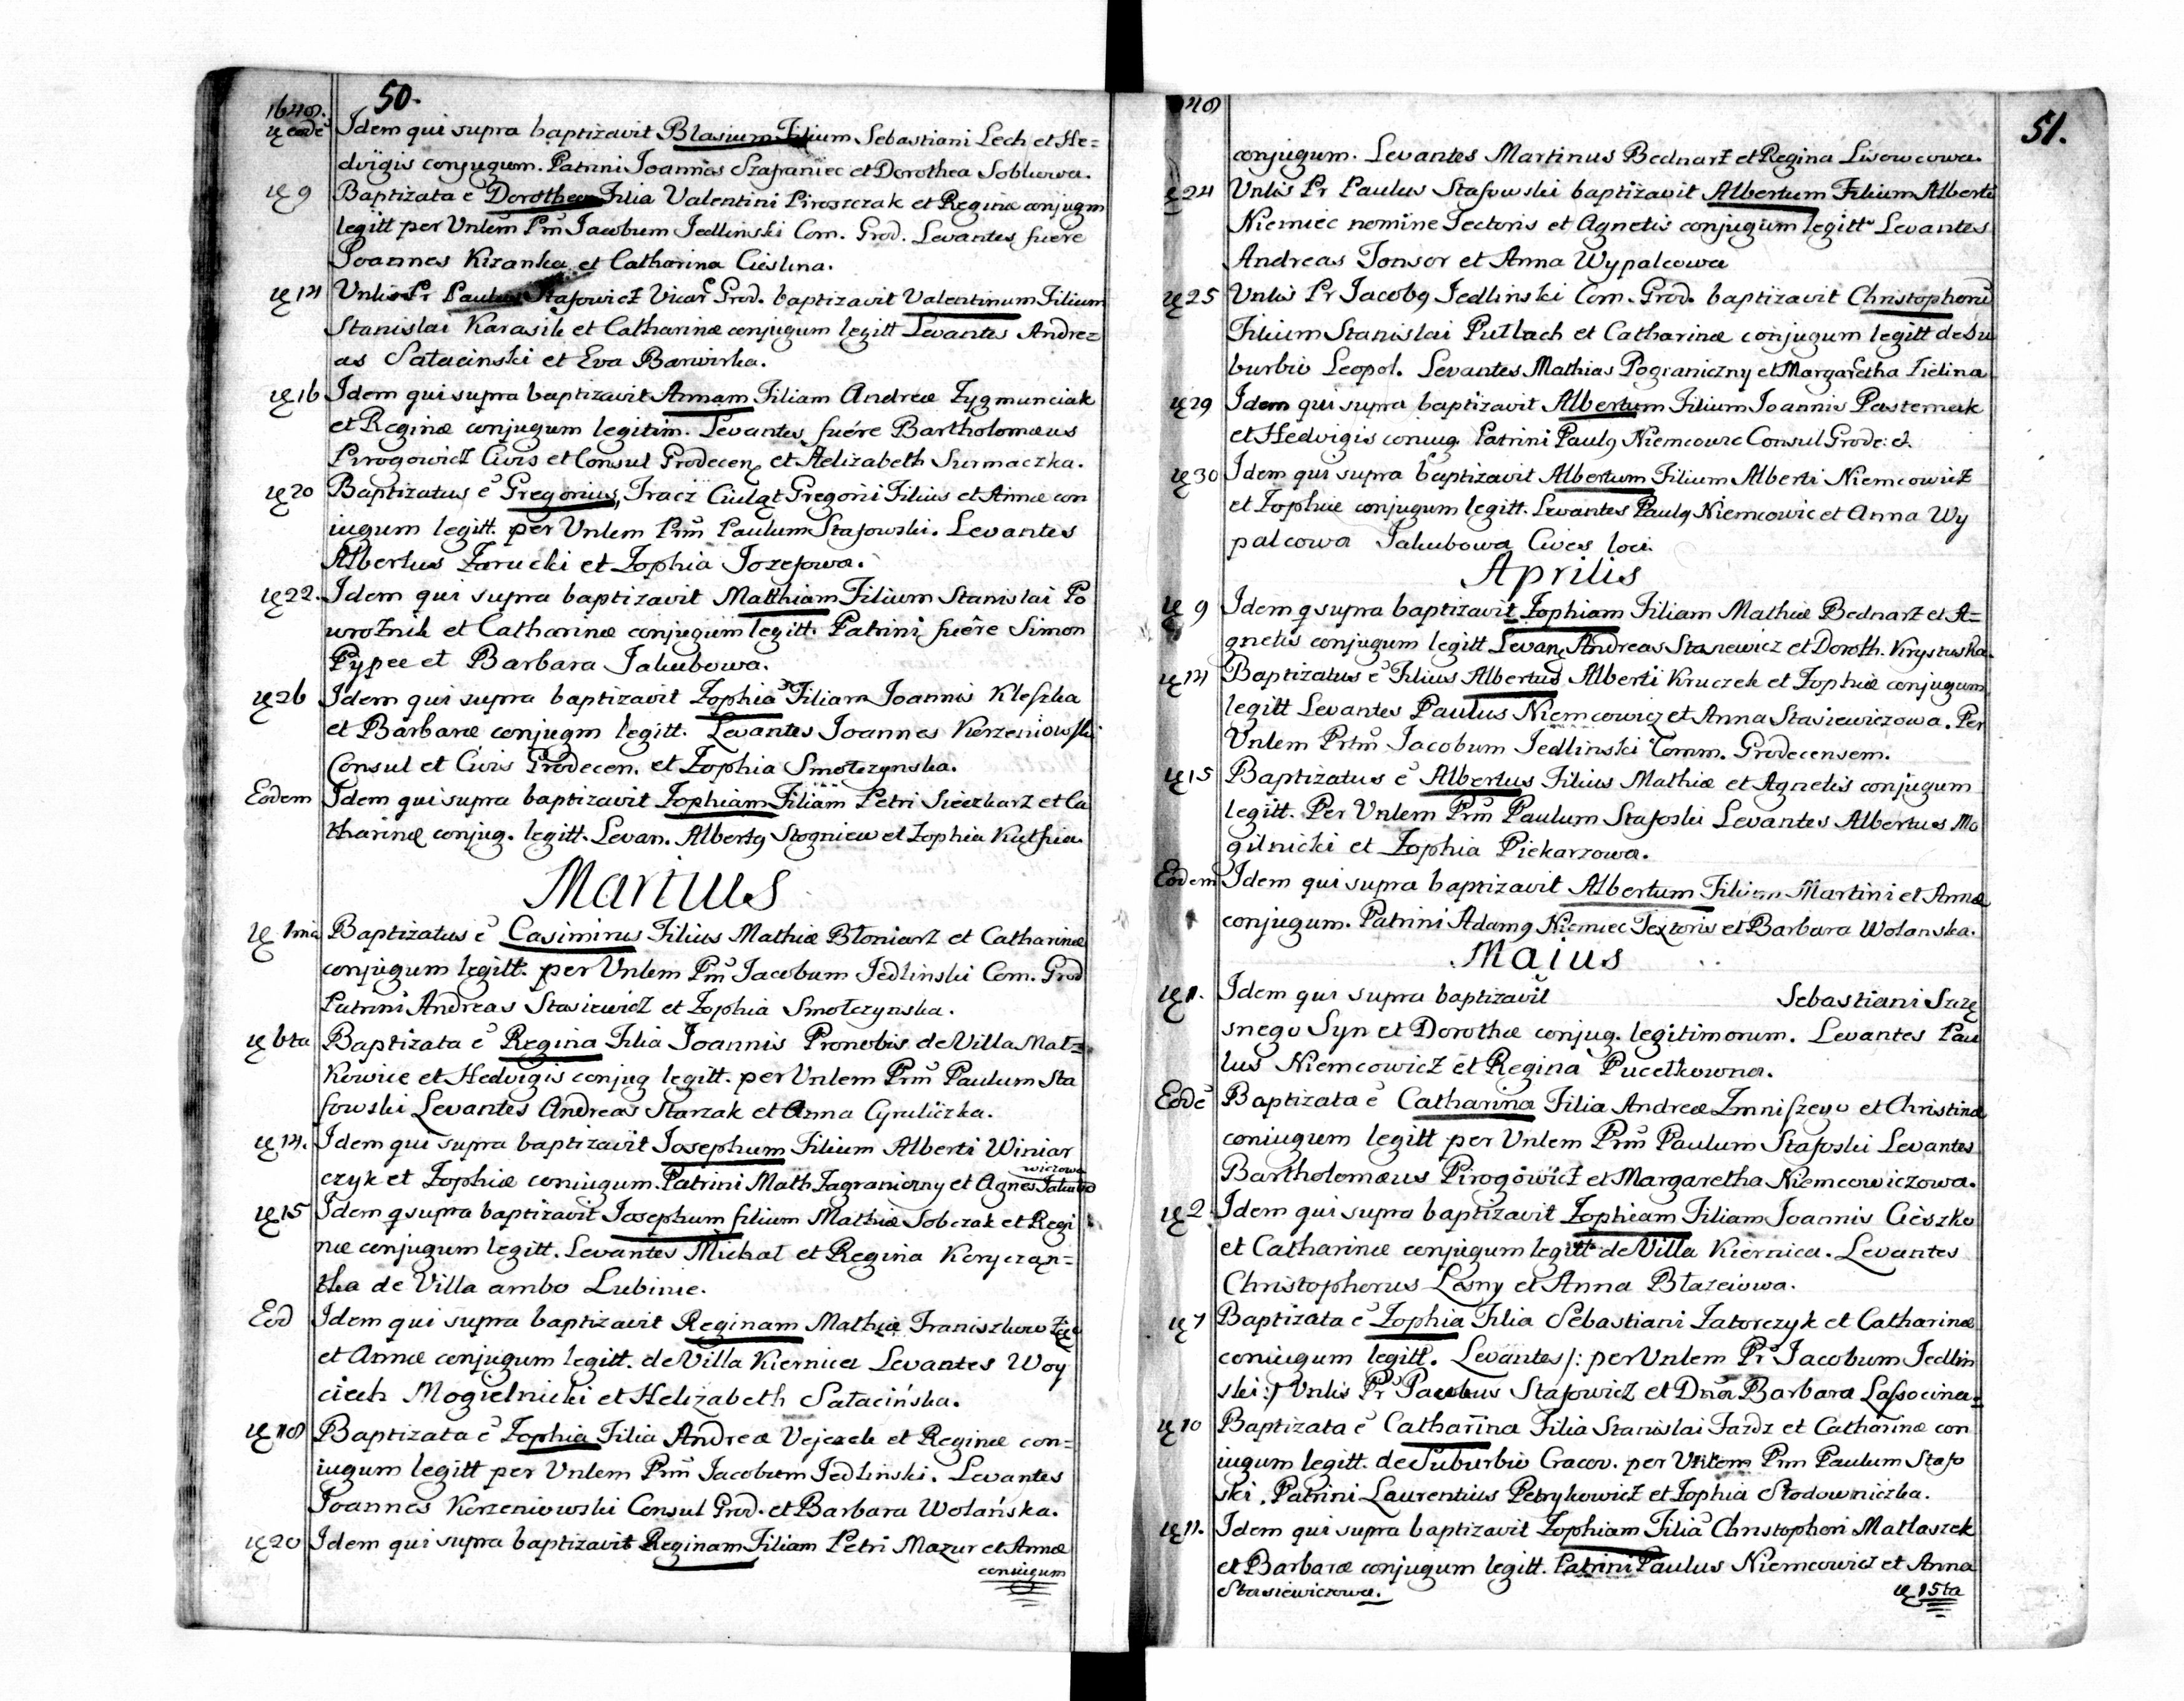 1648. 50.
ię eodē Idem qui supra baptizavit Blasium Filium Sebastiani Lech et He=
dvigis conjugum. Patrini Joannes Szafraniec et Dorothea Soblowa.
ię 9 Baptizata ē Dorothea Filia Valentini Piroszczak et Reginæ conjugm
legitt per Vnlem Prm̄ Jacobum Jedlinski Com. Grod. Levantes fuere
Joannes Kizanka et Catharina Cieslina.
ię 14 Vnlis Pr Paulus Stafowicz Vicar Grod. baptizavit Valentinum Filium
Stanislai Karasik et Catharinæ conjugum legitt Levantes Andre=
as Sałacinski et Eva Barwirka.
ię 16 Idem qui supra baptizavit Annam Filiam Andreæ Zygmunciak
et Reginæ conjugum legitim. Levantes fuére Bartholomæus
Pirogowicz Civis et Consul Grodecen et Aelizabeth Surmaczka.
ię 20 Baptizatus ē Gregorius, Tracz Ciuląt Gregorii Filius et Annæ con
iugum legitt. per Vnlem Prm̄ Paulum Stafowski. Levantes
Albertus Zarucki et Zophia Jozefowa.
ię 22. Idem qui supra baptizavit Matthiam Filium Stanislai Po
wroźnik et Catharinæ conjugum legitt. Patrini fuêre Simon
Pypee et Barbara Jakubowa.
ię 26 Idem qui supra baptizavit Zophiā Filiam Joannis Kleszka
et Barbaræ conjugm legitt. Levantes Joannes Korzeniowski
Consul et Civis Grodecen. et Zophia Smołczynska.
Eodem Idem qui supra baptizavit Zophiam Filiam Petri Sieczkarz et Ca
tharinæ conjug. legitt. Levan. Albertq Stogniew et Zophia Kutsia.
Martius
ię 1ma Baptizatus ē Casimirus Filius Mathiæ Błoniarz et Catharinæ
conjugum legitt. per Vnlem Pm̄ Jacobum Jedlinski Com. Grod
Patrini Andreas Stasiewicz et Zophia Smołczynska.
ię 6ta Baptizata ē Regina Filia Joannis Pronobis de Villa Mat=
kowice et Hedvigis conjug legitt. per Vnlem Prm̄ Paulum Sta
fowski Levantes Andreas Starzak et Anna Cyruliczka.
ię 14. Idem qui supra baptizavit Josephum Filium Alberti Winiar
czyk et Zophiæ coniugum. Patrini Math Zagraniczny et Agnes Jakubo
wiczowa
ię 15 Idem q supra baptizavit Josephum filium Mathiæ Sobczak et Regi
næ conjugum legitt. Levantes Michał et Regina Koryczan=
tka de Villa ambo Lubinie.
Eod Idem qui supra baptizavit Reginam Mathiæ Franiszkow Zięć
et Annæ conjugum legitt. de Villa Kiernica Levantes Woy
ciech Mogielnicki et Helizabeth Sałacińska.
ię 18 Baptizata ē Zophia Filia Andreæ Vejezek et Reginæ con=
iugum legitt per Vnlem Prm̄ Jacobum Jedlinski. Levantes
Joannes Korzeniowski Consul Grod. et Barbara Wolańska.
ię 20 Idem qui supra baptizavit Reginam Filiam Petri Mazur et Annæ
coniugum
48 51.
conjugum. Levantes Martinus Bednarz et Regina Lisowcowa.
ię 24 Vnlis Pr Paulus Stafowski baptizavit Albertum Filium Alberti
Niemiec nomine Tectoris et Agnetis conjugum legitt Levantes
Andreas Tonsor et Anna Wypalcowa
ię 25 Vnlis Pr Jacobq Jedlinski Com. Grod. baptizavit Christophorū
Filium Stanislai Putlach et Catharinæ conjugum legitt de Su
burbio Leopol. Levantes Mathias Pograniczny et Margaretha Zielina
ię 29 Idem qui supra baptizavit Albertum Filium Joannis Pasternak
et Hedvigis coniug Patrini Paulq Niemcowic Consul Grode: et
ię 30 Idem qui supra baptizavit Albertum Filium Alberti Niemcowicz
et Zophiæ conjugum legitt. Levantes Paulq Niemcowic et Anna Wy
palcowa Jakubowa Cives loci.
Aprilis
ię 9 Idem q supra baptizavit Zophiam Filiam Mathiæ Bednarz et A=
gnetis conjugum legitt Levan Andreas Stasiewicz et Doroth. Krystuska.
ię 14 Baptizatus ē Filius Albertus Alberti Kruczek et Zophiæ conjugum
legitt Levantes Paulus Niemcowicz et Anna Stasiewiczowa. Per
Vnlem Prm̄ Jacobum Jedlinski Comm. Grodecensem.
ię 15 Baptizatus ē Albertus Filius Mathiæ et Agnetis conjugum
legitt. Per Vnlem Prm̄ Paulum Stafoski Levantes Albertus Mo
gilnicki et Zophia Piekarzowa.
Eodem Idem qui supra baptizavit Albertum Filium Martini et Annæ
conjugum. Patrini Adamq Niemiec Textoris et Barbara Wolanska.
Maius
ię 1. Idem qui supra baptizavit Sebastiani Szczę
snego Syn et Dorothæ conjug. legitimorum. Levantes Pau
lus Niemcowicz et Regina Pucełkowna.
Eodē Baptizata ē Catharina Filia Andreæ Zmniszego et Christinæ
coniugum legitt per Vnlem Prm̄ Paulum Stafoski Levantes
Bartholomæus Pirogowicz et Margaretha Niemcowiczowa.
ię 2 Idem qui supra baptizavit Zophiam Filiam Joannis Cieszko
et Catharinæ conjugum legitt de Villa Kiernica. Levantes
Christophorus Lesny et Anna Błazeiowa.
ię 7 Baptizata ē Zophia Filia Sebastiani Zatorczyk et Catharinæ
coniugum legitt. Levantes /: per Vnlem Pr Jacobum Jedlin
ski :/ Vnlis Pr Paulus Stafowicz et Dnā Barbara Lassocina=
ię 10 Baptizata ē Catharina Filia Stanislai Fardz et Catharinæ con
iugum legitt. de Suburbio Cracov. per Vnlem Prm Paulum Stafo
ski. Patrini Laurentius Petrykowicz et Zophia Słodowniczka.
ię 11. Idem qui supra baptizavit Zophiam Filiā Christophori Matlaszek
et Barbaræ conjugum legitt. Patrini Paulus Niemcowicz et Anna
Stasiewiczowa. ię 15ta